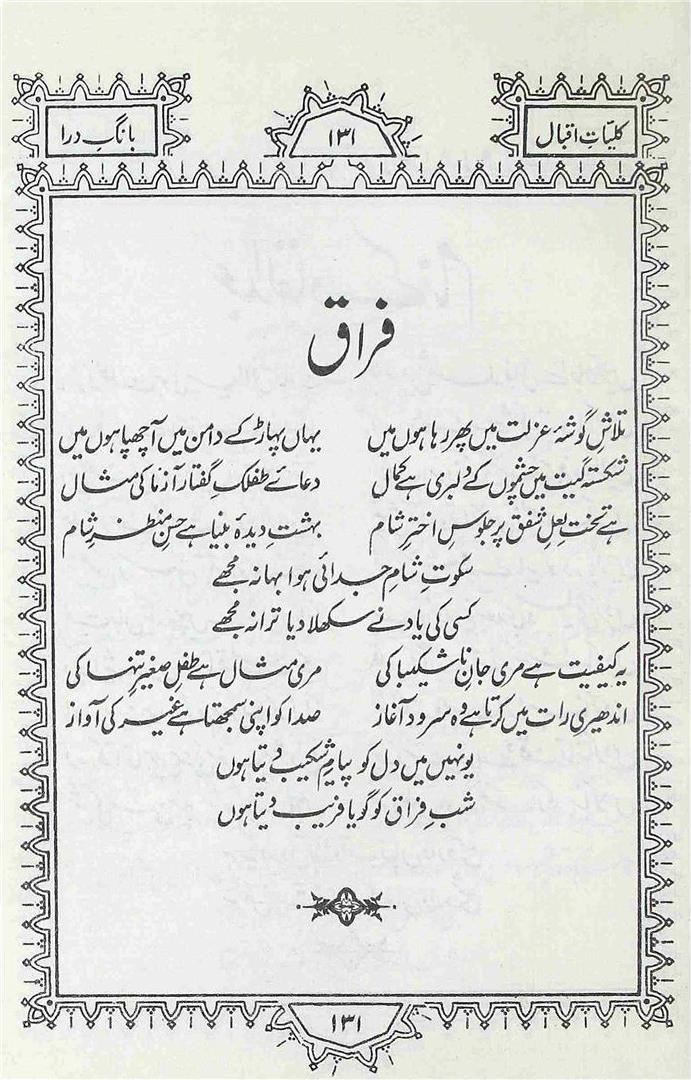 کلیاتِ اقبال ۱۳۱ بانگِ درا
فراق
تلاشِ گوشۂ عزلت میں پھر رہا ہوں میں یہاں پہاڑ کے دامن میں آ چھپا ہوں میں
شکستہ گیت میں چشموں کے دلبری ہے کمال دعائے طفلکِ گفتار آزما کی مثال
ہے تختِ لعلِ شفق پر جلوسِ اخترِ شام بہشتِ دیدۂ بینا ہے حسنِ منظرِ شام
سکوتِ شامِ جدائی ہوا بہانہ مجھے
کسی کی یاد نے سکھلا دیا ترانہ مجھے
یہ کیفیت ہے مری جانِ ناشکیبا کی مری مثال ہے طفلِ صغیرِ تنہا کی
اندھیری رات میں کرتا ہے وہ سرود آغاز صدا کو اپنی سمجھتا ہے غیر کی آواز
یونہیں میں دل کو پیامِ شکیب دیتا ہوں
شبِ فراق کو گویا فریب دیتا ہوں
۱۳۱